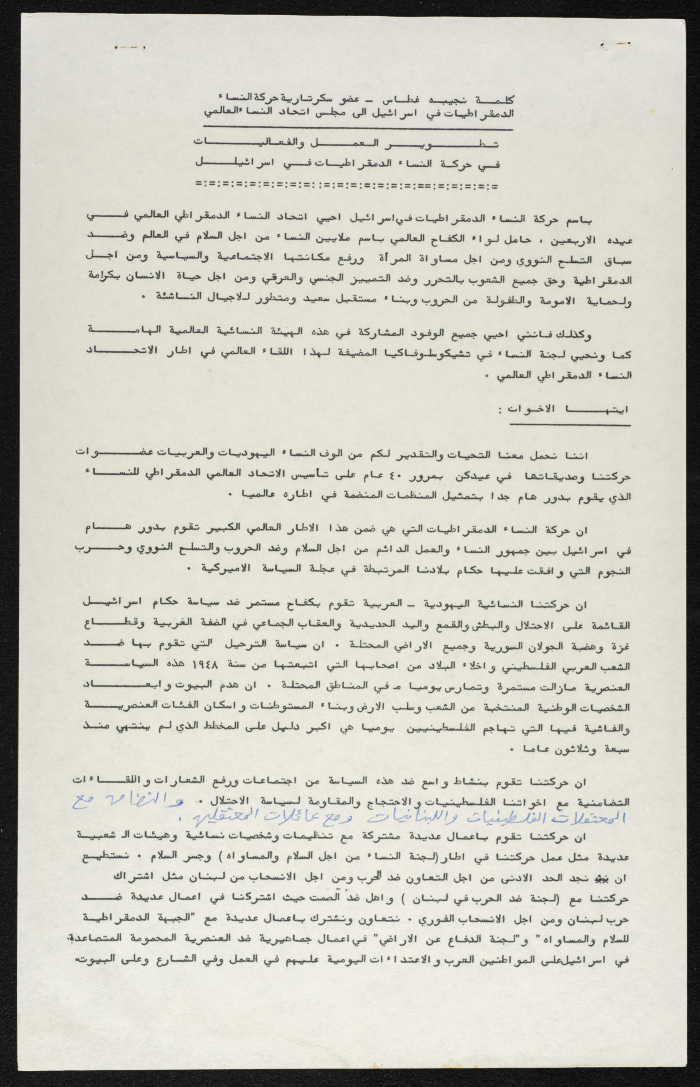 كلمة نجيبه غطاس - عضو سكرتارية حركة النساء
الدمقراطيات في اسرائيل الى مجلس اتحاد النساء العالمي
تطوير العمل والفعاليات
في حركة النساء الدمقراطيات في اسرائيل
=:=:=:=:=:=:=:=:=:=::=:=:=:=:=:=:==:=:=:=:=:=:=
باسم حركة النساء الدمقراطيات في اسرائيل احيي اتحاد النساء الدمقراطي العالمي في
عيده الاربعين ، حامل لواء الكفاح العالمي باسم ملايين النساء من اجل السلام في العالم وضد
سباق التسلح النووي ومن اجل مساواة المرأة ورفع مكانتها الاجتماعية والسياسية ومن اجل
الدمقراطية وحق جميع الشعوب بالتحرر وضد التمييز الجنسي والعرقي ومن اجل حياة الانسان بكرامة
ولحماية الامومة والطفولة من الحروب وبناء مستقبل سعيد ومتطور للاجيال الناشئة .
وكذلك فانني احيي جميع الوفود المشاركة في هذه الهيئة النسائية العالمية الهامة
كما ونحيي لجنة النساء في تشيكوسلوفاكيا المضيفة لهذا اللقاء العالمي في اطار الاتحاد
النساء الدمقراطي العالمي .
ايتها الاخوات :
اننا نحمل معنا التحيات والتقدير لكم من الوف النساء اليهوديات والعربيات عضوات
حركتنا وصديقاتها في عيدكن بمرور ٤٠ عام على تأسيس الاتحاد العالمي الدمقراطي للنساء
الذي يقوم بدور هام جدا بتمثيل المنظمات المنضمة في اطاره عالميا .
ان حركة النساء الدمقراطيات التي هي ضمن هذا الاطار العالمي الكبير تقوم بدور هام
في اسرائيل بين جمهور النساء والعمل الدائم من اجل السلام وضد الحروب والتسلح النووي وحرب
النجوم التي وافقت عليها حكام بلادنا المرتبطة في عجلة السياسة الاميركية .
ان حركتنا النسائية اليهودية - العربية تقوم بكفاح مستمر ضد سياسة حكام اسرائيل
القائمة على الاحتلال والبطش والقمع واليد الحديدية والعقاب الجماعي في الضفة الغربية وقطاع
غزة وهضبة الجولان السورية وجميع الاراضي المحتلة . ان سياسة الترحيل التي تقوم بها ضد
الشعب العربي الفلسطيني واخلاء البلاد من اصحابها التي اتبعتها من سنة ١٩٤٨ هذه السياسة
العنصرية مازالت مستمرة وتمارس يوميا في المناطق المحتلة . ان هدم البيوت وابعاد
الشخصيات الوطنية المنتخبة من الشعب وسلب الارض وبناء المستوطنات واسكان الفئات العنصرية
والفاشية فيها التي تهاجم الفلسطينيين يوميا هي اكبر دليل على المخطط الذي لم ينتهي منذ
سبعة وثلاثون عاما .
ان حركتنا تقوم بنشاط واسع ضد هذه السياسة من اجتماعات ورفع الشعارات واللقاءات
التضامنية مع اخواتنا الفلسطينيات والاحتجاج والمقاومة لسياسة الاحتلال . والتضامن مع
المعتقلات الفلسطينيات واللبنانيات ومع عائلات المعتقلين .
ان حركتنا تقوم باعمال عديدة مشتركة مع تنظيمات وشخصيات نسائية وهيئات الشعبية
عديدة مثل عمل حركتنا في اطار (لجنة النساء من اجل السلام والمساواه) وجسر السلام . نستطيع
ان نجد الحد الادنى من اجل التعاون ضد الحرب ومن اجل الانسحاب من لبنان مثل اشتراك
حركتنا مع (لجنة ضد الحرب في لبنان ) واهل ضد الصمت حيث اشتركنا في اعمال عديدة ضد
حرب لبنان ومن اجل الانسحاب الفوري . نتعاون ونشترك باعمال عديدة مع "الجبهة الدمقراطية
للسلام والمساواه" و"لجنة الدفاع عن الاراضي" في اعمال جماهيرية ضد العنصرية المحمومة المتصاعدة
في اسرائيل على المواطنين العرب والاعتداءات اليومية عليهم في العمل وفي الشارع وعلى البيوت